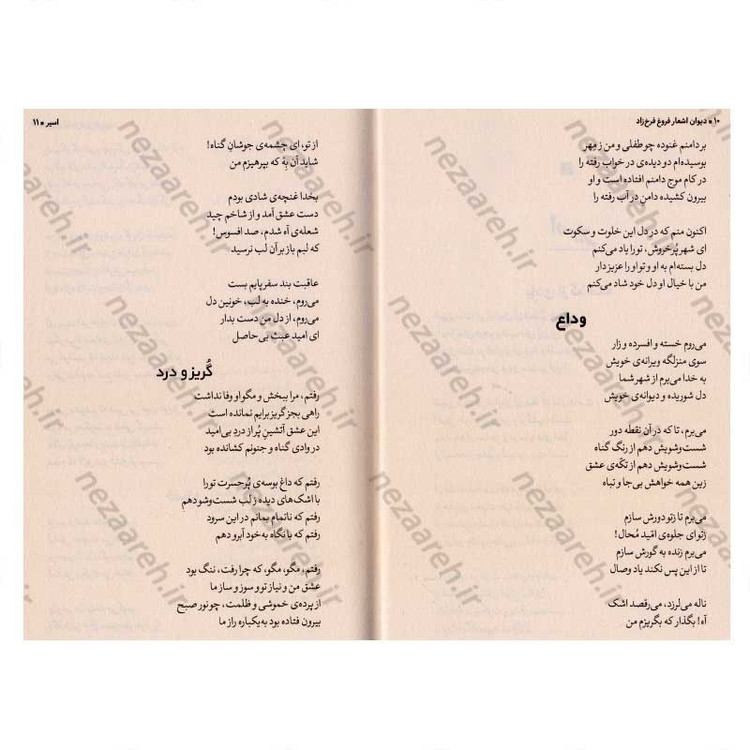 ۱۰ • دیوان اشعار فروغ فرخ‌زاد
بر دامنم غنوده چو طفلی و من ز مهر
بوسیده‌ام دو دیده‌ی در خواب رفته را
در کام موج دامنم افتاده است و او
بیرون کشیده دامن در آب رفته را
اکنون منم که در دل این خلوت و سکوت
ای شهر پُرخروش، تو را یاد می‌کنم
دل بسته‌ام به او و تو او را عزیز دار
من با خیال او دل خود شاد می‌کنم
وداع
می‌روم خسته و افسرده و زار
سوی منزلگه ویرانه‌ی خویش
به خدا می‌برم از شهر شما
دل شوریده و دیوانه‌ی خویش
می‌برم، تا که در آن نقطه دور
شست‌وشویش دهم از رنگ گناه
شست‌وشویش دهم از لکّه‌ی عشق
زین همه خواهش بی‌جا و تباه
می‌برم تا ز تو دورش سازم
ز تو، ای جلوه‌ی امّید مُحال!
می‌برم زنده به گورش سازم
تا از این پس نکند یاد وصال
ناله می‌لرزد، می‌رقصد اشک
آه! بگذار که بگریزم من
اسیر • ۱۱
از تو، ای چشمه‌ی جوشان گناه!
شاید آن بِهْ که بپرهیزم من
بخدا غنچه‌ی شادی بودم
دست عشق آمد و از شاخم چید
شعله‌ی آه شدم، صد افسوس!
که لبم باز بر آن لب نرسید
عاقبت بند سفر پایم بست
می‌روم، خنده به لب، خونین دل
می‌روم، از دل من دست بدار
ای امید عبث بی‌حاصل
گُریز و درد
رفتم، مرا ببخش و مگو او وفا نداشت
راهی بجز گریز برایم نمانده است
این عشق آتشین پُر از دردِ بی‌امید
در وادی گناه و جنونم کشانده بود
رفتم که داغ بوسه‌ی پُرحسرت تو را
با اشک‌های دیده ز لب شست‌وشو دهم
رفتم که ناتمام بمانم در این سرود
رفتم که با نگاه به خود آبرو دهم
رفتم، مگو، مگو، که چرا رفت، ننگ بود
عشق من و نیاز تو و سوز و ساز ما
از پرده‌ی خموشی و ظلمت، چو نور صبح
بیرون فتاده بود به‌یکباره راز ما
nezaareh.ir